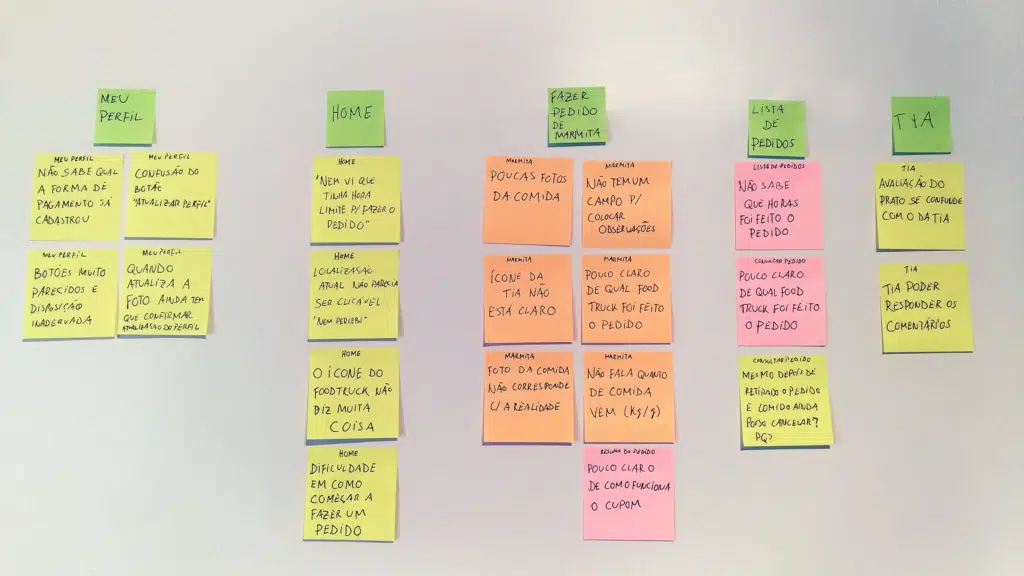 MEU
PERFIL
MEU PERFIL
NÃO SABE QUAL
A FORMA DE
PAGAMENTO JÁ
CADASTROU
MEU PERFIL
CONFUSÃO DO
BOTÃO
"ATUALIZAR PERFIL"
MEU PERFIL
BOTÕES MUITO
PARECIDOS E
DISPOSIÇÃO
INADEQUADA
MEU PERFIL
QUANDO
ATUALIZA A
FOTO AINDA TEM
QUE CONFIRMAR
ATUALIZAÇÃO DO PERFIL
HOME
HOME
"NEM VI QUE
TINHA HORA
LIMITE P/ FAZER O
PEDIDO"
HOME
LOCALIZAÇÃO
ATUAL NÃO PARECIA
SER CLICÁVEL
"NEM PERCEBI"
HOME
O ÍCONE DO
FOODTRUCK NÃO
DIZ MUITA
COISA
HOME
DIFICULDADE
EM COMO
COMEÇAR A
FAZER UM
PEDIDO
FAZER
PEDIDO
DE
MARMITA
MARMITA
POUCAS FOTOS
DA COMIDA
MARMITA
NÃO TEM UM
CAMPO P/
COLOCAR
OBSERVAÇÕES
MARMITA
ÍCONE DA
TIA NÃO
ESTÁ CLARO
MARMITA
POUCO CLARO
DE QUAL FOOD
TRUCK FOI FEITO
O PEDIDO
MARMITA
FOTO DA COMIDA
NÃO CORRESPONDE
C/ A REALIDADE
MARMITA
NÃO FALA QUANTO
DE COMIDA
VEM (KG/g)
RESUMO DO PEDIDO
POUCO CLARO
DE COMO FUNCIONA
O CUPOM
LISTA
DE
PEDIDOS
LISTA DE PEDIDOS
NÃO SABE
QUE HORAS
FOI FEITO O
PEDIDO
CONSULTAR PEDIDO
POUCO CLARO
DE QUAL FOOD
TRUCK FOI FEITO
O PEDIDO
CONSULTAR PEDIDO
MESMO DEPOIS DE
RETIRADO O PEDIDO
E COMIDO AINDA
POSSO CANCELAR?
PQ?
TIA
TIA
AVALIAÇÃO DO
PRATO SE CONFUNDE
COM O DA TIA
TIA
TIA PODER
RESPONDER OS
COMENTÁRIOS